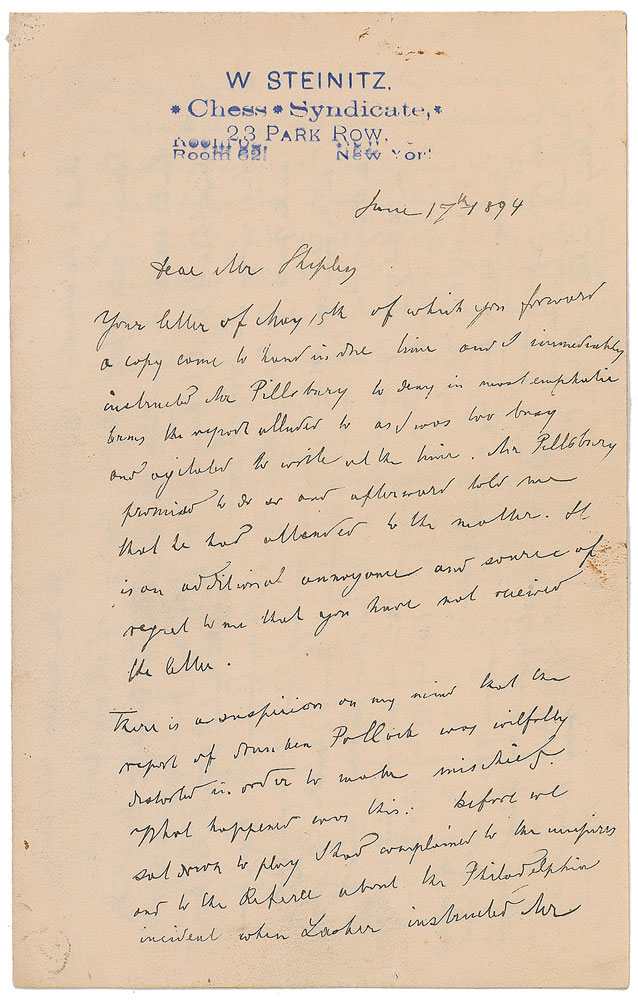 W STEINITZ.
* Chess * Syndicate, *
23 PARK ROW.
Room 62! New Yor!
June 17th 1894
Dear Mr Shipley
Your letter of May 15th of which you forward
a copy came to hand in due time and I immediately
instructed Mr Pillsbury to deny in most emphatic
terms the report alluded to as I was too busy
and agitated to write at the time. Mr Pillsbury
promised to do so and afterward told me
that he had attended to the matter. It
is an additional annoyance and source of
regret to me that you have not received
the letter.
There is a suspicion on my mind that the
report of drunken Pollock was wilfully
distorted in order to make mischief.
What happened was this: Before we
sat down to play I had complained to the umpires
and to the Referee about the Philadelphia
incident when Lasker instructed Mr